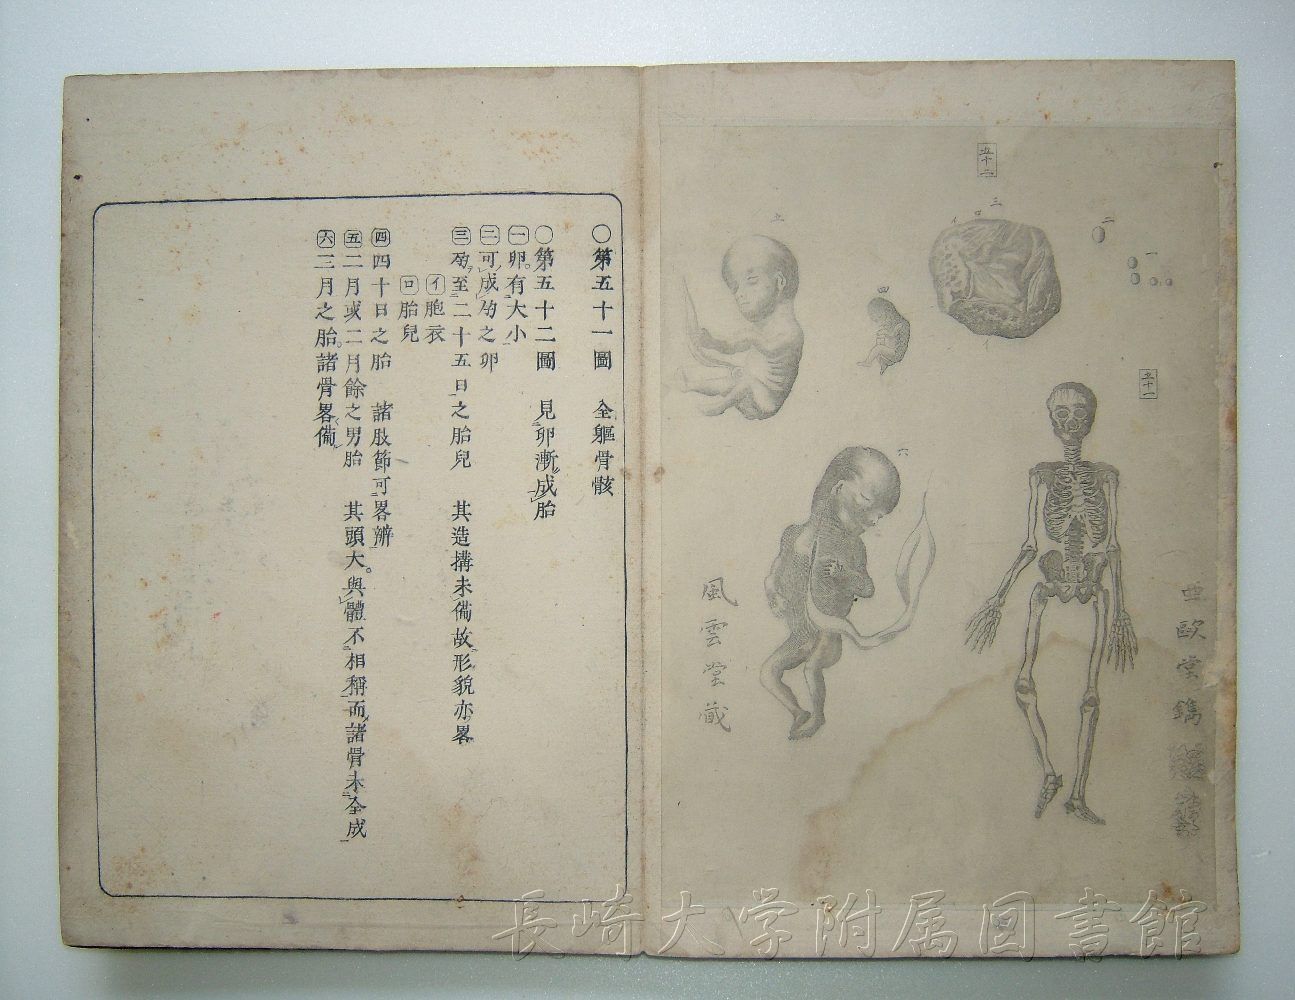 五十二
三
ロ
イ
イ
二
一
四
五
六
五十一
亜歐堂鐫
風雲堂蔵
○第五十一圖　全軀骨骸
○第五十二圖　見卵漸成胎
㊀卵有大小
㊁可成孕之卵
㊂孕至二十五日之胎兒　其造搆未備故形貌亦畧
イ胞衣
ロ胎兒
㊃四十日之胎　諸肢節可畧辨
㊄二月或二月餘之男胎　其頭大。與體不相稱而諸骨未全成
㊅三月之胎。諸骨畧備
長崎大学附属図書館